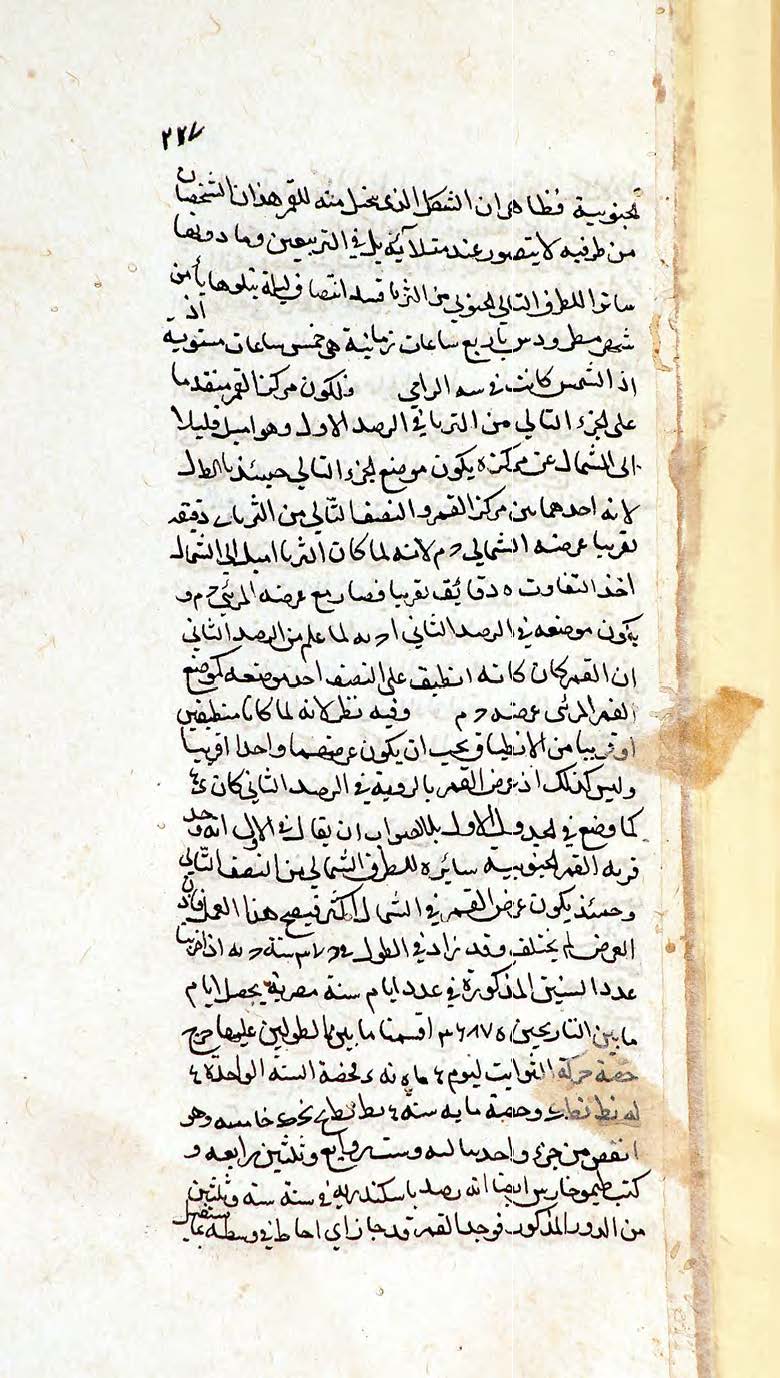 ٢٢٧
الجنوبية فظاهر ان الشكل الذى يتخيل منه للقمر هذان الشخصان
من طرفيه لا يتصور عند متلائيه بل في التربيعين وما دونها
ماتوا للطرف التالي الجنوبي من الثريا قبل انتصاف ليلة يتلوها يا من
اذ
شهر مطرودس باربع ساعات زمانية هى خمس ساعات مستوية
اذ الشمس كانت في سه الرامي ولكون مركز القمر متقدما
على الجزء التالي من الثريا في الرصد الاول وهو اميل قليلا
الى الشمال عن مركزه يكون موضع الجزء التالي حينئذ بالطول
لانه احدهما بين مركز القمر والنصف التالي من الثريا دقيقه
تقريبا عرضه الشمالي حم لانه لما كان الثريا اميل الى الشمال
اخذ التفاوت ه دقائق تقريبا فصار مع عرضه المرئي حم و
يكون موضعه في الرصد الثاني ا ر به لما علم من الرصد الثاني
ان القمر كان كانه انطبق على النصف احد موضعه كموضع
القمر المرئى عرضه حم وفيه نظر لانه لما كانا منطبقين
او قريبا من الانطباق يجب ان يكون عرضهما واحدا اقريبا
وليس كذلك اذ عرض القمر بالروية في الرصد الثاني كان
كما وضع في الجدول الاول بل الصواب ان يقال في الاول انه وجد
قربه القمر الجنوبية سائره للطرف الشمالي من النصف التالي
وحينئذ يكون عرض القمر في الشمال اكثر فيصح هذا العمل فاذن
العرض لم يختلف وقد زاد في الطول في سنة به اذا ضربنا
عدد السنين المذكورة في عدد ايام سنة مصرية يحصل ايام
ما بين التاريخين ١٣٦٨٧٥ اقسمنا ما بين الطولين عليها خرج
حصة حركة الثوابت ليوم فحصة السنة الواحدة
وحصة مايه سنه خامسه وهو
انقص من جزء واحد وست روابع وثلثين رابعه و
كتب طيموخارس ايضا انه رصد باسكندريه في سنة سته وثلثين
من الدور المذكور فوجد القمر قد حاز اي احاط في وسطه بما يستقبل